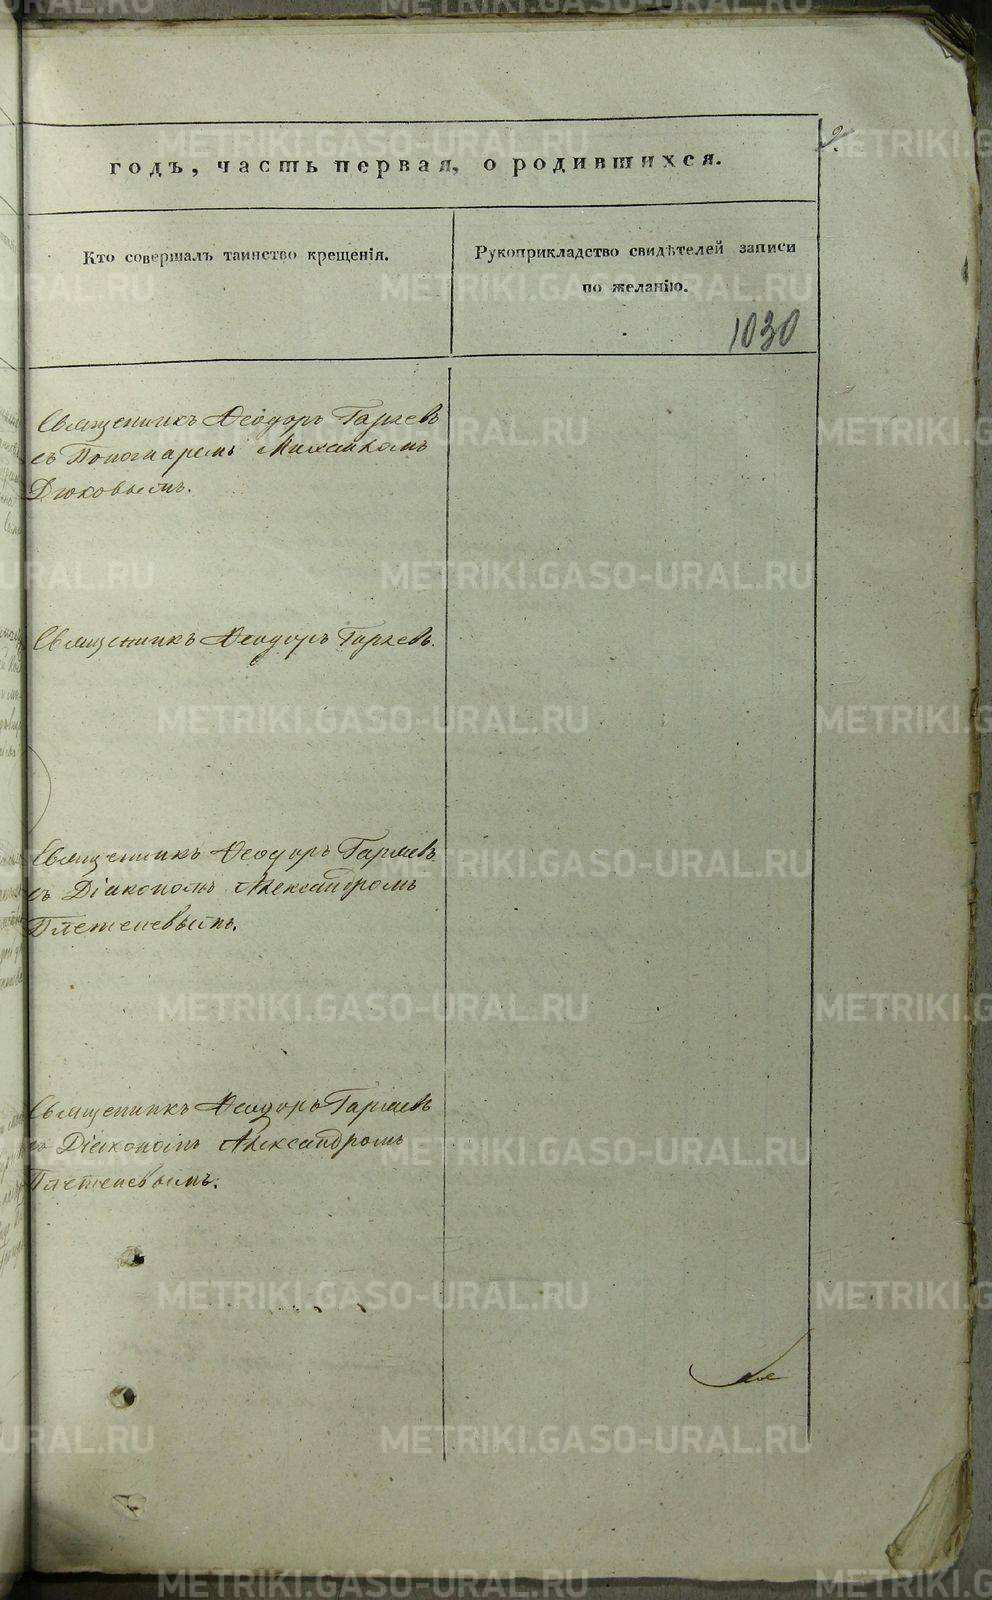 годъ, часть первая, о родившихся.
2.
Кто совершалъ таинство крещенія.
Рукоприкладство свидѣтелей записи
по желанію.
1030
Священникъ Ѳеодоръ Гаряевъ
съ Пономаремъ Михаиломъ
Дюковымъ.
Священникъ Ѳеодоръ Гаряевъ.
Священникъ Ѳеодоръ Гаряевъ
съ Діакономъ Александромъ
Плетеневымъ.
Священникъ Ѳеодоръ Гаряевъ
съ Діакономъ Александромъ
Плетеневымъ.
METRIKI.GASO-URAL.RU